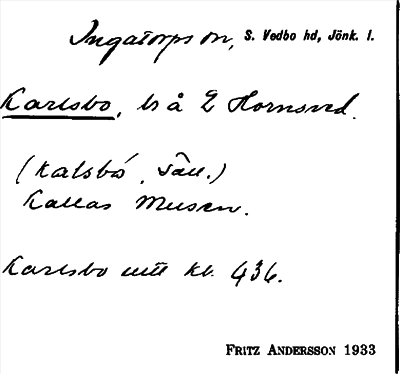 Ingatorps sn, S. Vedbo hd, Jönk. l.
Karlsbo, ls å E Hornsved.
(Kalsbó, säll.)
Kallas Musen.
Karlsbo utit kb. 436.
FRITZ ANDERSSON 1933